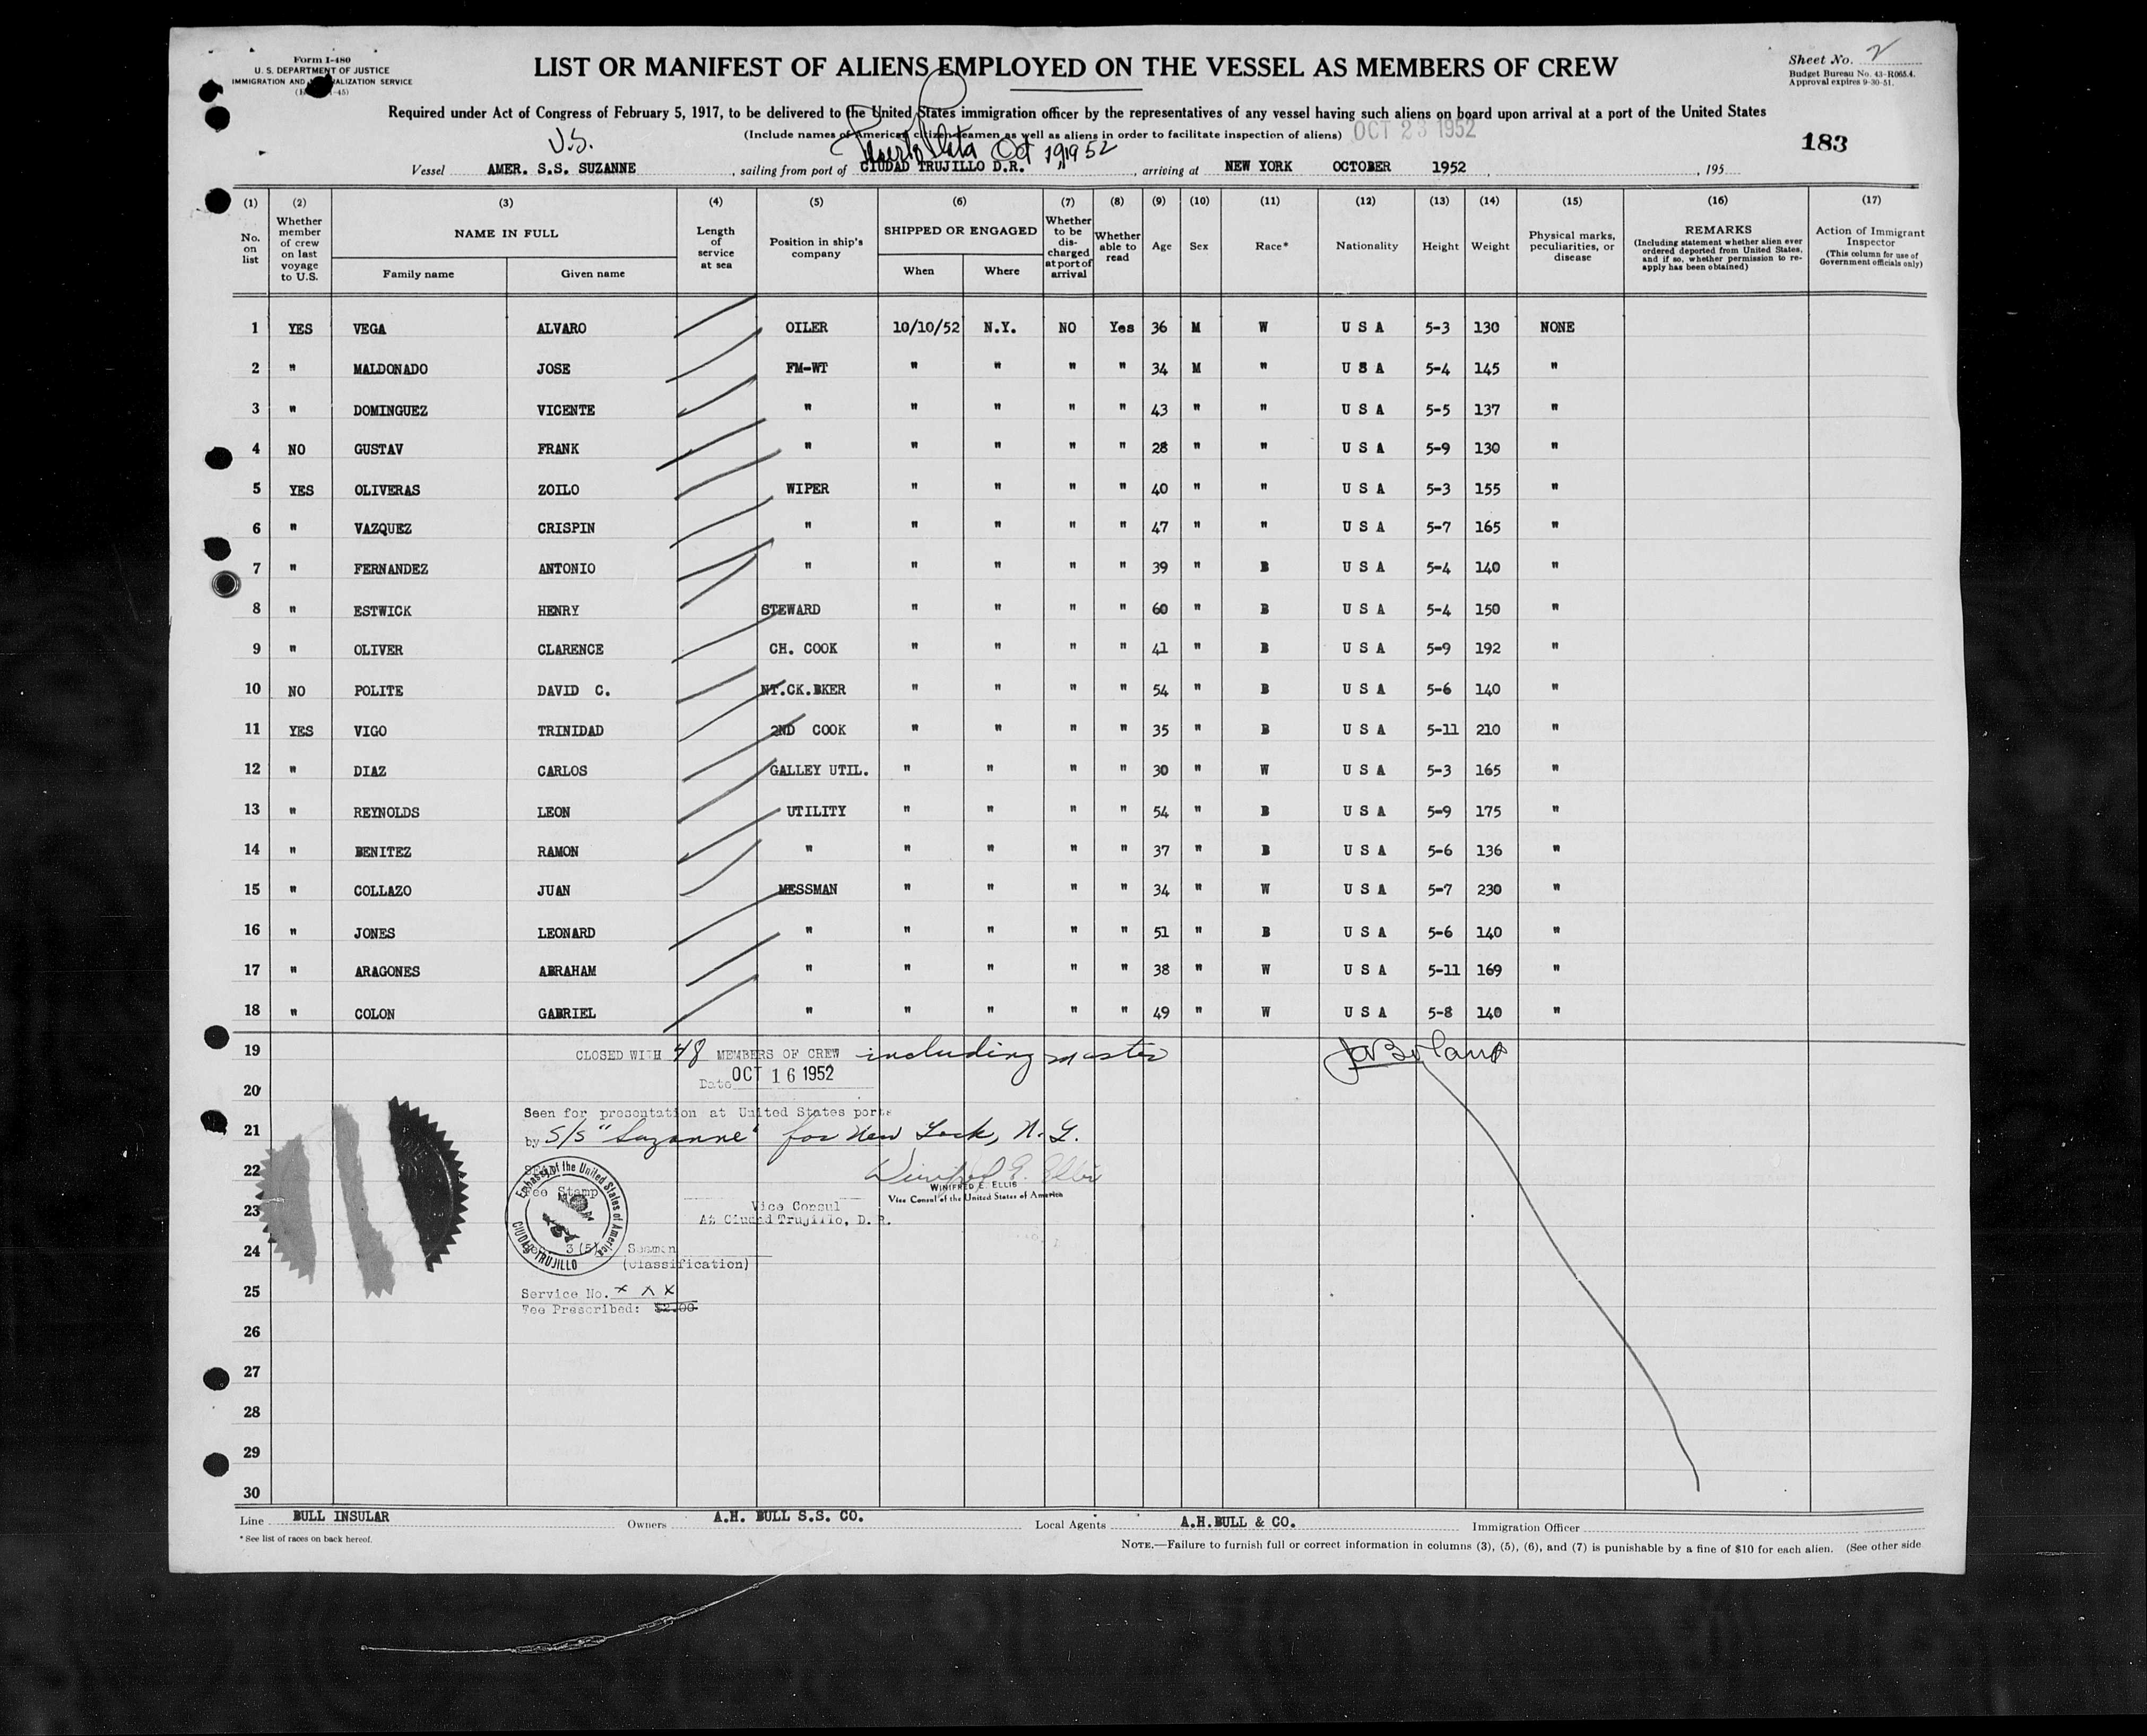 Form I-480
U. S. DEPARTMENT OF JUSTICE
IMMIGRATION AND NATURALIZATION SERVICE
LIST OR MANIFEST OF ALIENS EMPLOYED ON THE VESSEL AS MEMBERS OF CREW
Sheet No. 2
Budget Bureau No. 43-R065.4.
Approval expires 9-30-51.
Required under Act of Congress of February 5, 1917, to be delivered to the United States immigration officer by the representatives of any vessel having such aliens on board upon arrival at a port of the United States
(Include names of American citizen seamen as well as aliens in order to facilitate inspection of aliens) OCT 23 1952
183
U.S. Puerto Plata Oct 19, 1952
Vessel AMER. S.S. SUZANNE , sailing from port of CIUDAD TRUJILLO D.R. , arriving at NEW YORK OCTOBER 1952 , 195
(1) (2) (3) (4) (5) (6) (7) (8) (9) (10) (11) (12) (13) (14) (15) (16) (17)
No. on list Whether member of crew on last voyage to U.S. NAME IN FULL Family name Given name Length of service at sea Position in ship's company SHIPPED OR ENGAGED When Where Whether to be discharged at port of arrival Whether able to read Age Sex Race* Nationality Height Weight Physical marks, peculiarities, or disease REMARKS (Including statement whether alien ever ordered deported from United States, and if so, whether permission to re-apply has been obtained) Action of Immigrant Inspector (This column for use of Government officials only)
1 YES VEGA ALVARO OILER 10/10/52 N.Y. NO Yes 36 M W U S A 5-3 130 NONE
2 " MALDONADO JOSE FM-WT " " " " 34 M " U S A 5-4 145 "
3 " DOMINGUEZ VICENTE " " " " " 43 " " U S A 5-5 137 "
4 NO GUSTAV FRANK " " " " " 28 " " U S A 5-9 130 "
5 YES OLIVERAS ZOILO WIPER " " " " 40 " " U S A 5-3 155 "
6 " VAZQUEZ CRISPIN " " " " " 47 " " U S A 5-7 165 "
7 " FERNANDEZ ANTONIO " " " " " 39 " B U S A 5-4 140 "
8 " ESTWICK HENRY STEWARD " " " " 60 " B U S A 5-4 150 "
9 " OLIVER CLARENCE CH. COOK " " " " 41 " B U S A 5-9 192 "
10 NO POLITE DAVID C. NT.CK.BKER " " " " 54 " B U S A 5-6 140 "
11 YES VIGO TRINIDAD 2ND COOK " " " " 35 " B U S A 5-11 210 "
12 " DIAZ CARLOS GALLEY UTIL. " " " " 30 " W U S A 5-3 165 "
13 " REYNOLDS LEON UTILITY " " " " 54 " B U S A 5-9 175 "
14 " BENITEZ RAMON " " " " " 37 " B U S A 5-6 136 "
15 " COLLAZO JUAN MESSMAN " " " " 34 " W U S A 5-7 230 "
16 " JONES LEONARD " " " " " 51 " B U S A 5-6 140 "
17 " ARAGONES ABRAHAM " " " " " 38 " W U S A 5-11 169 "
18 " COLON GABRIEL " " " " " 49 " W U S A 5-8 140 "
19 CLOSED WITH 48 MEMBERS OF CREW including master
20 Date OCT 16 1952
Seen for presentation at United States ports
21 by S/S "Suzanne" for New York, N.Y.
22 Winifred E. Ellis
SEAL
Fee Stamp
WINIFRED E. ELLIS
Vice Consul of the United States of America
Embassy of the United States of America
CIUDAD TRUJILLO
23 Vice Consul
At Ciudad Trujillo, D. R.
24 3 (5) Seaman
(Classification)
25 Service No. x x x
Fee Prescribed: $2.00
26
27
28
29
30
Line BULL INSULAR Owners A.H. BULL S.S. CO. Local Agents A.H.BULL & CO. Immigration Officer
* See list of races on back hereof.
NOTE.—Failure to furnish full or correct information in columns (3), (5), (6), and (7) is punishable by a fine of $10 for each alien. (See other side